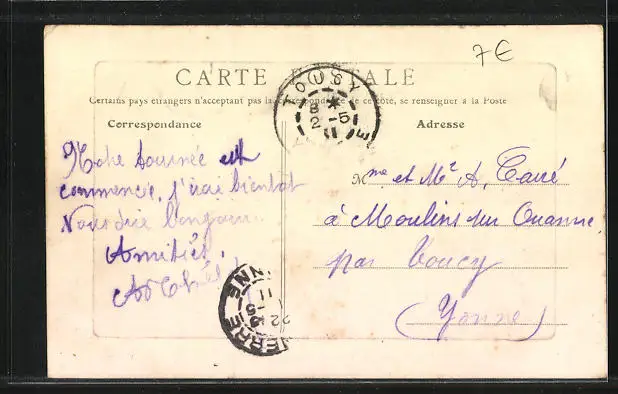 7€
CARTE POSTALE
Certains pays étrangers n'acceptant pas la correspondance de ce côté, se renseigner à la Poste
Correspondance
Adresse
TOUCY
8 *
2 -5
11
Notre tournée est
commencée, j'irai bientôt
Vous dire bonjour.
Amitiés,
Mme et Mr A, Carré
à Moulins sur Ouanne
par Toucy
(Yonne)
11
-5
22